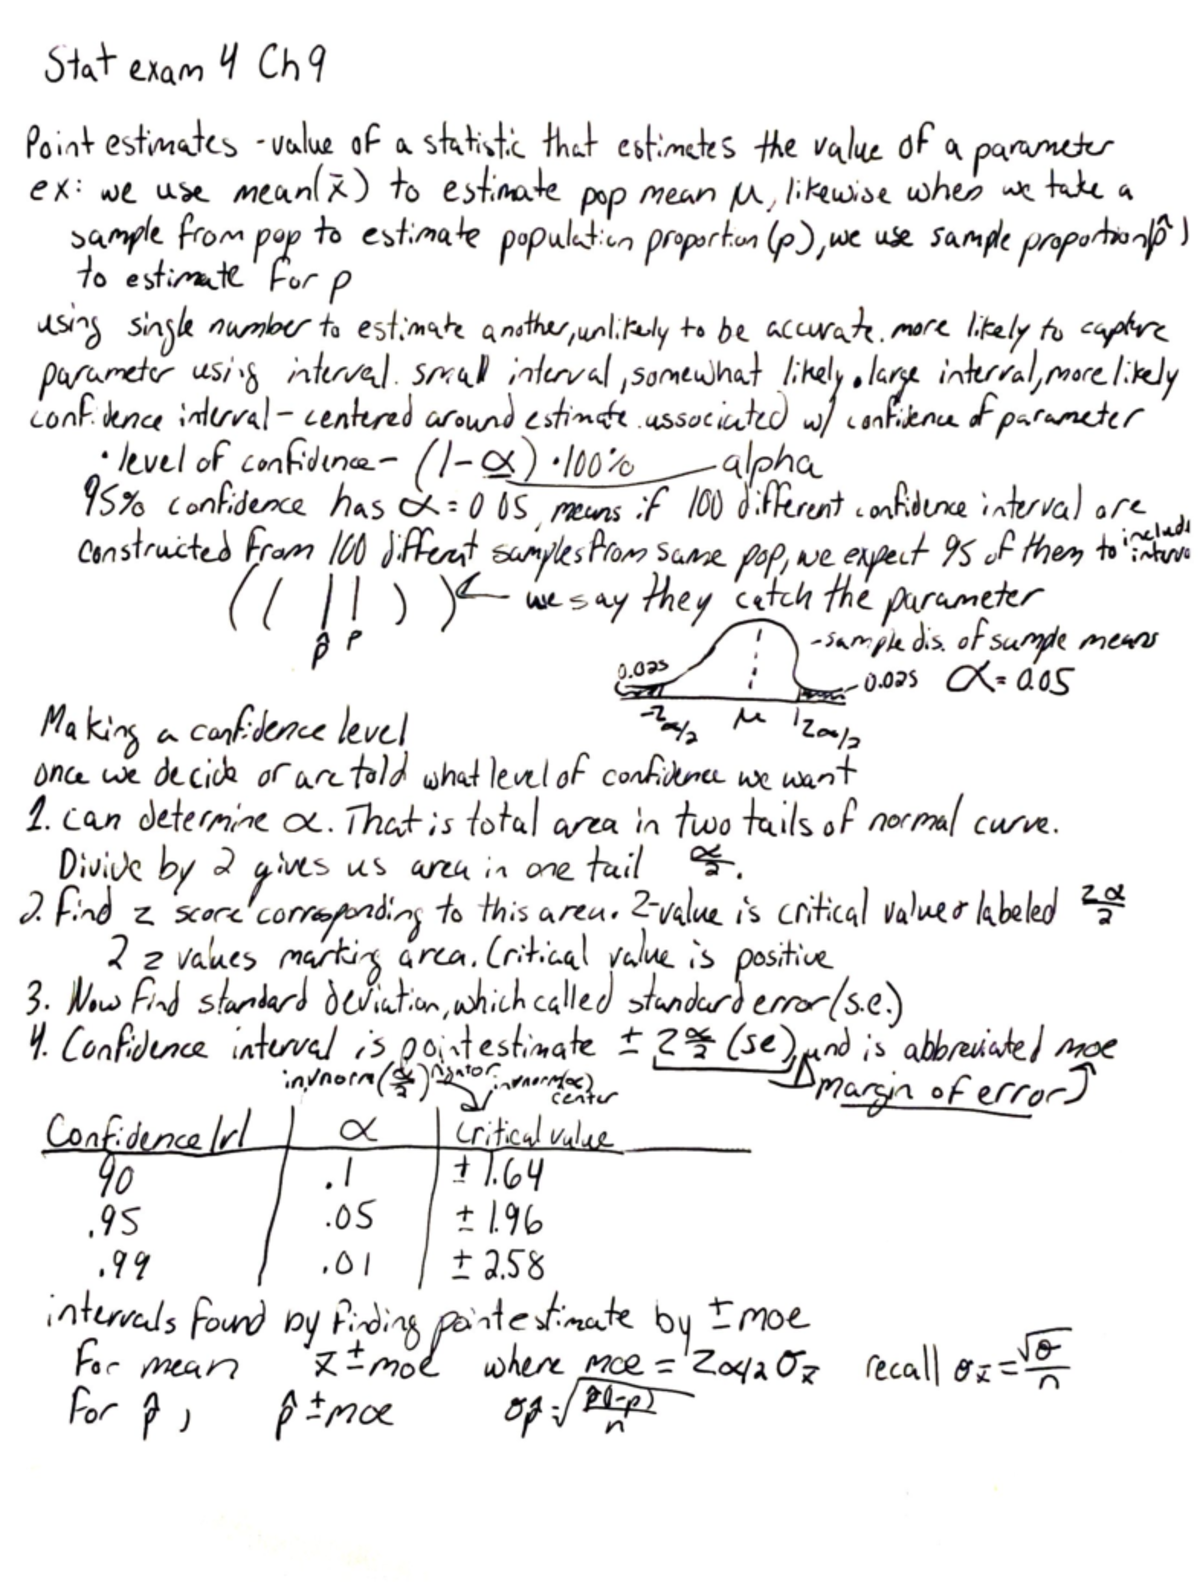 Stat exam 4 Ch 9
Point estimates - value of a statistic that estimates the value of a parameter
ex: we use mean(x̄) to estimate pop mean μ, likewise when we take a
sample from pop to estimate population proportion (p), we use sample proportion(p̂)
to estimate for p
using single number to estimate another, unlikely to be accurate. more likely to capture
parameter using interval. small interval, somewhat likely. large interval, more likely
confidence interval - centered around estimate. associated w/ confidence of parameter
• level of confidence - (1-α)·100% alpha
95% confidence has α=0.05, means if 100 different confidence interval are
constructed from 100 different samples from same pop, we expect 95 of them to include interva
( ( | | ) ) ← we say they catch the parameter
p̂ p
- sample dis. of sample means
0.025 0.025 α=0.05
-zα/2 μ zα/2
Making a confidence level
once we decide or are told what level of confidence we want
1. can determine α. That is total area in two tails of normal curve.
Divide by 2 gives us area in one tail α/2.
2. find z score corresponding to this area. Z-value is critical value & labeled zα/2
2 z values marking area. Critical value is positive
3. Now find standard deviation, which called standard error (s.e.)
4. Confidence interval is point estimate ± zα/2 (se), and is abbreviated moe
margin of error
invnorm(α/2) invnorm(α)
center
Confidence lvl | α | critical value
90 | .1 | ±1.64
.95 | .05 | ±1.96
.99 | .01 | ±2.58
intervals found by finding point estimate by ±moe
For mean x̄±moe where moe = zα/2 σx̄ recall σx̄=√σ/n
for p̂, p̂±moe σp̂=√p̂(1-p)/n